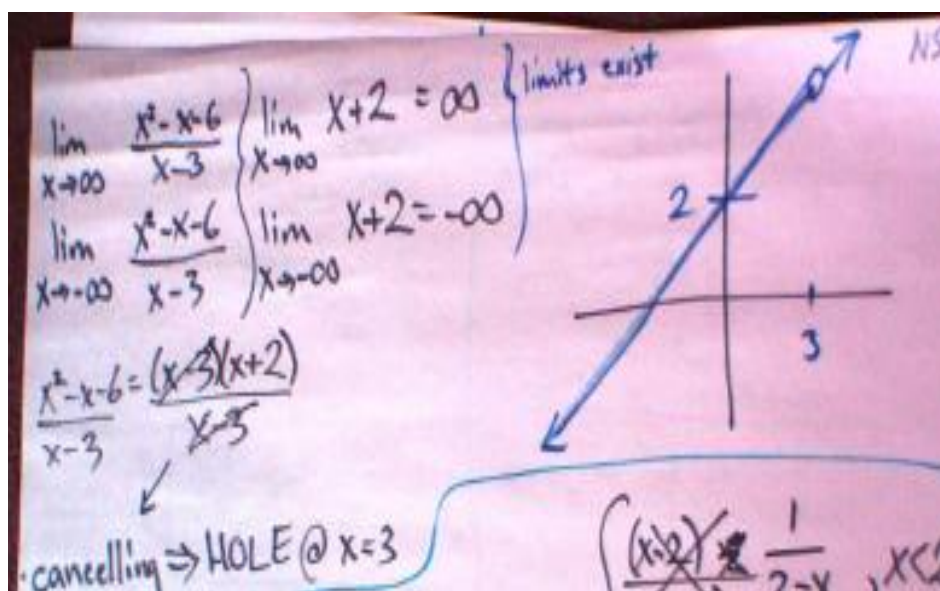 lim x→∞ x²-x-6 / x-3
lim x→∞ x+2 = ∞
limits exist
lim x→-∞ x²-x-6 / x-3
lim x→-∞ x+2 = -∞
x²-x-6 / x-3 = (x-3)(x+2) / x-3
cancelling ⇒ HOLE @ x=3
NS
2
3
1 / 2-x , x<2